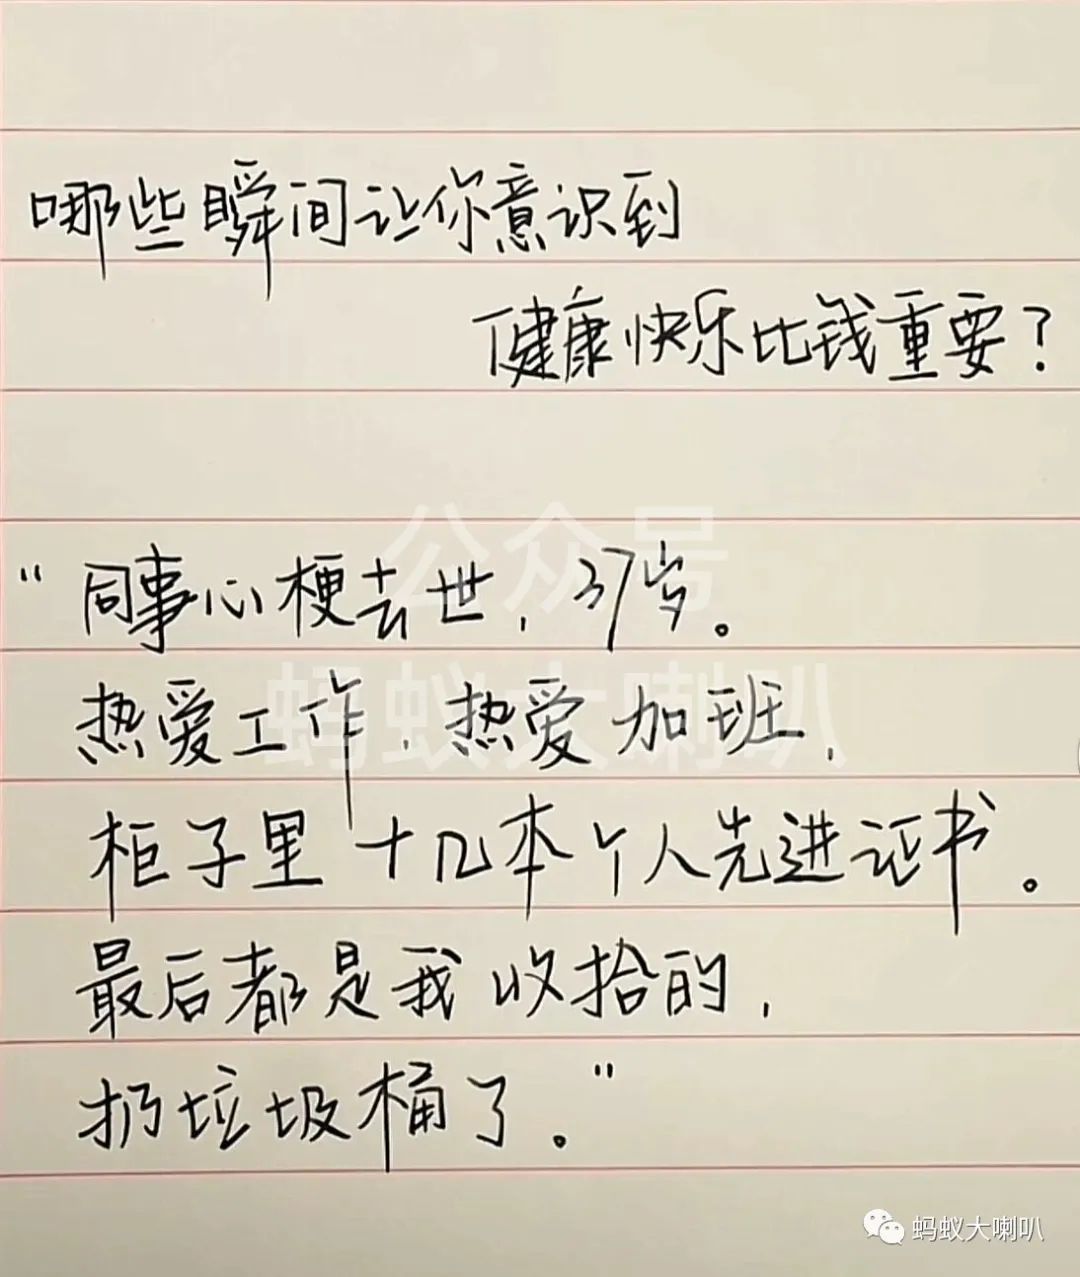 哪些瞬间让你意识到
健康快乐比钱重要？
公众号
"同事心梗去世，37岁。
蚂蚁大喇叭
热爱工作，热爱加班，
柜子里十几本个人先进证书。
最后都是我收拾的，
扔垃圾桶了。"
蚂蚁大喇叭